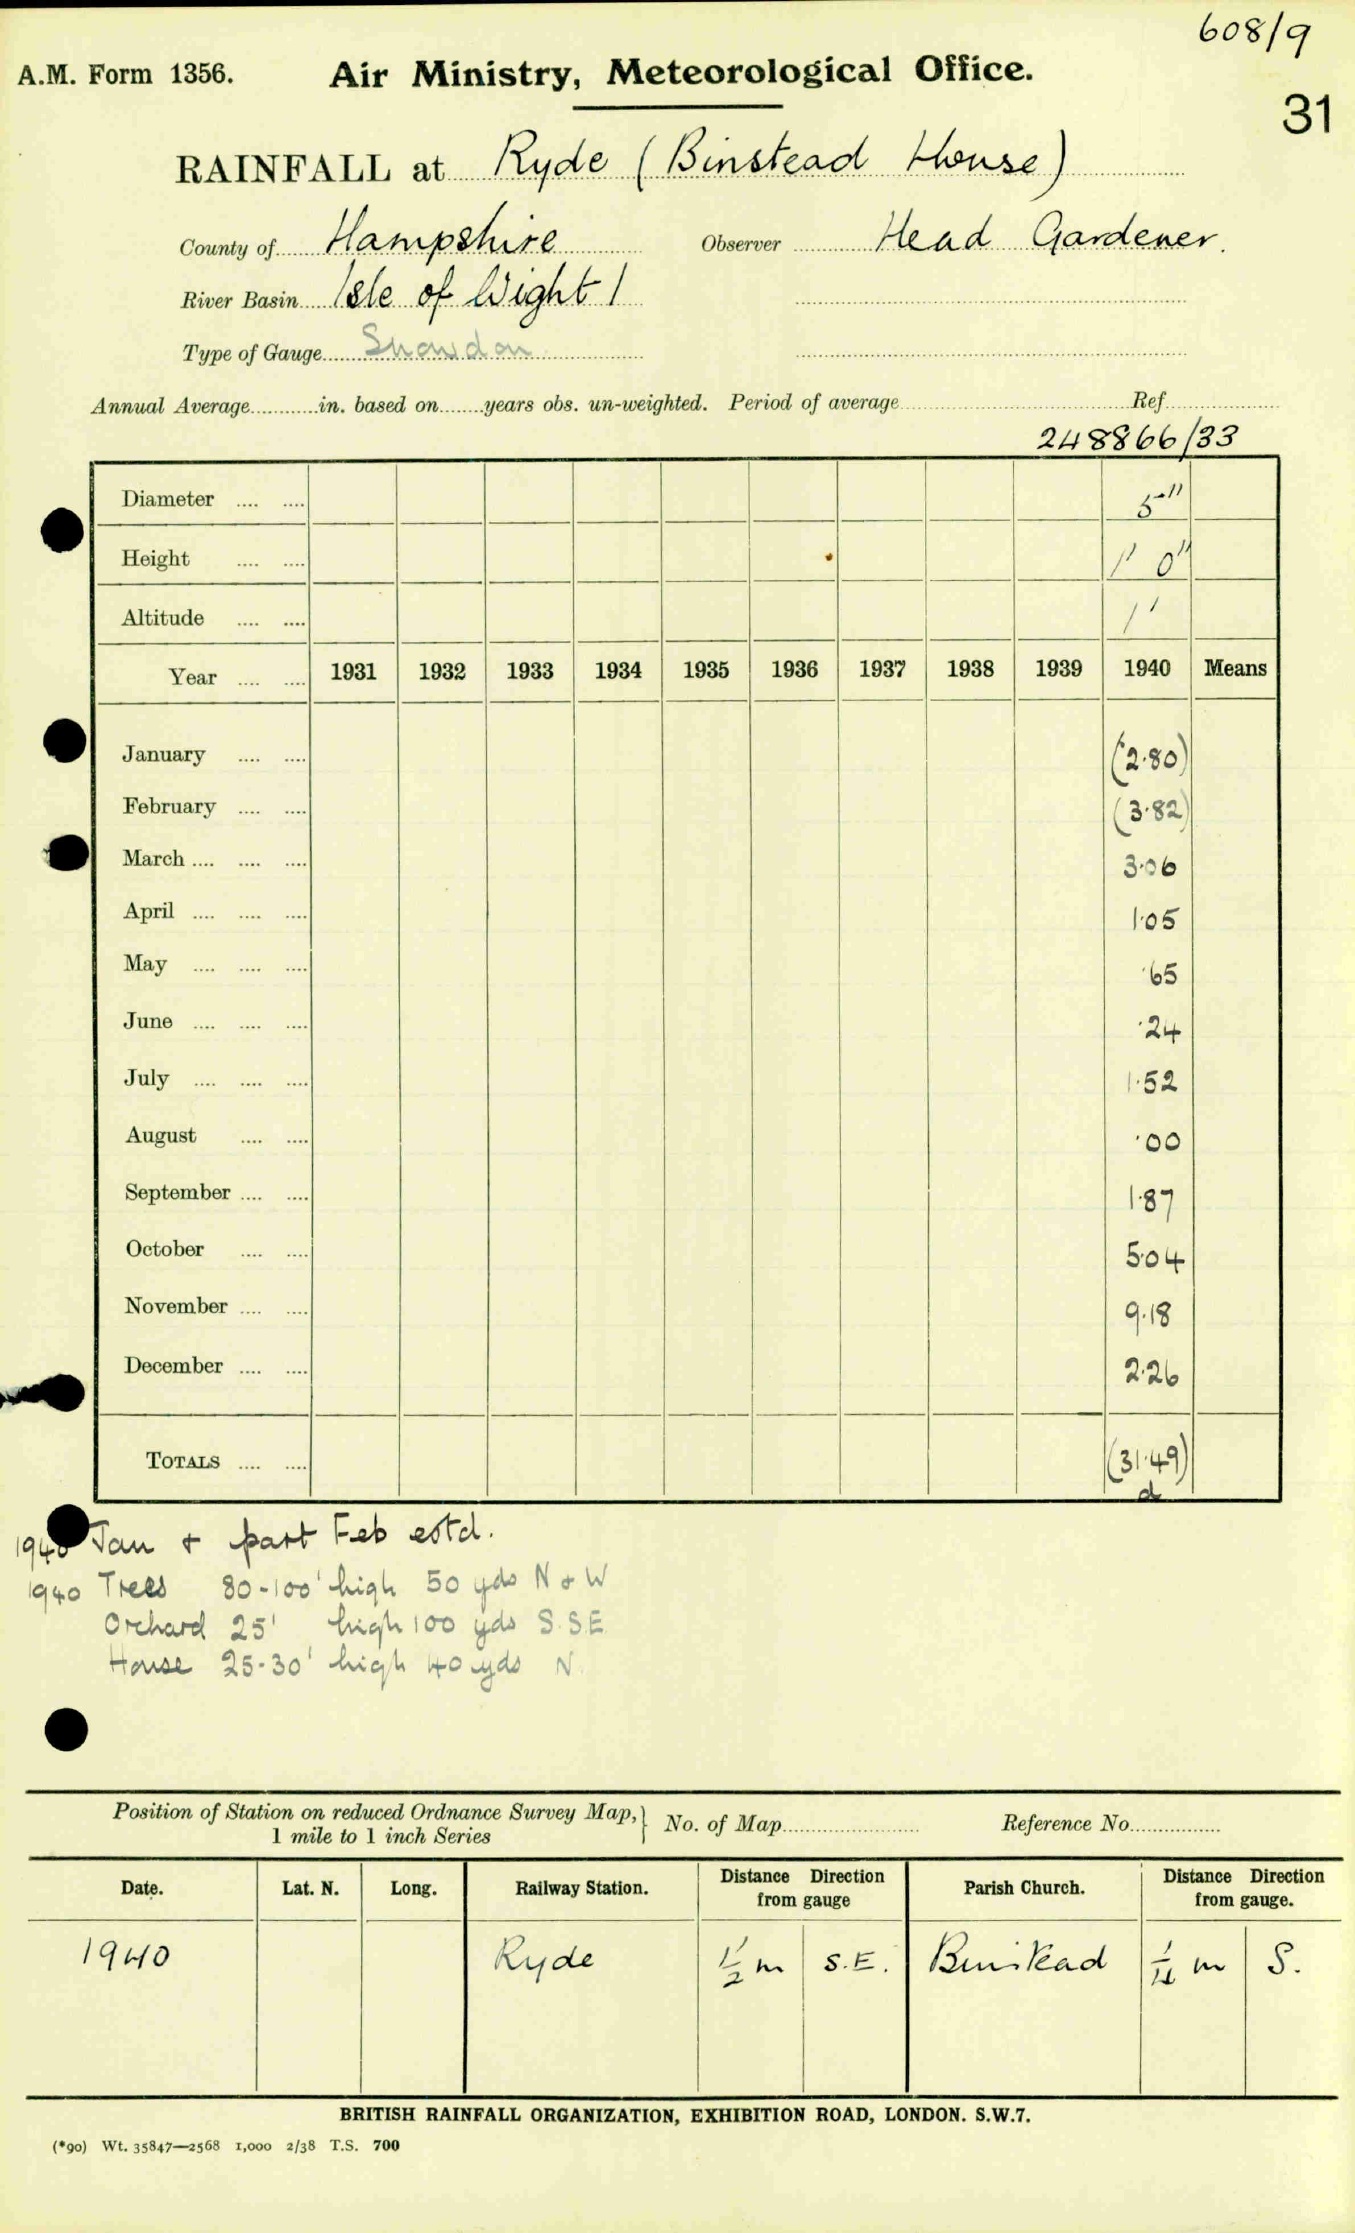 608/9
A.M. Form 1356. Air Ministry, Meteorological Office.
31
RAINFALL at Ryde (Binstead House)
County of Hampshire Observer Head Gardener.
River Basin Isle of Wight 1
Type of Gauge Snowdon
Annual Average............in. based on........years obs. un-weighted. Period of average.................... Ref....................
248866/33
Diameter .... .... 5"
Height .... .... 1' 0"
Altitude .... .... 1'
Year .... .... 1931 1932 1933 1934 1935 1936 1937 1938 1939 1940 Means
January .... .... (2.80)
February .... .... (3.82)
March .... .... .... 3.06
April .... .... .... 1.05
May .... .... .... .65
June .... .... .... .24
July .... .... .... 1.52
August .... .... .00
September .... .... 1.87
October .... .... 5.04
November .... .... 9.18
December .... .... 2.26
TOTALS .... .... (31.49)
d
1940 Jan & part Feb estd.
1940 Trees 80-100' high 50 yds N & W
Orchard 25' high 100 yds S.SE
House 25-30' high 40 yds N.
Position of Station on reduced Ordnance Survey Map, } No. of Map.................... Reference No................
1 mile to 1 inch Series
Date. Lat. N. Long. Railway Station. Distance Direction from gauge Parish Church. Distance Direction from gauge.
1940 Ryde 1½ m S.E. Binstead ¼ m S.
BRITISH RAINFALL ORGANIZATION, EXHIBITION ROAD, LONDON. S.W.7.
(*90) Wt. 35847—2568 1,000 2/38 T.S. 700